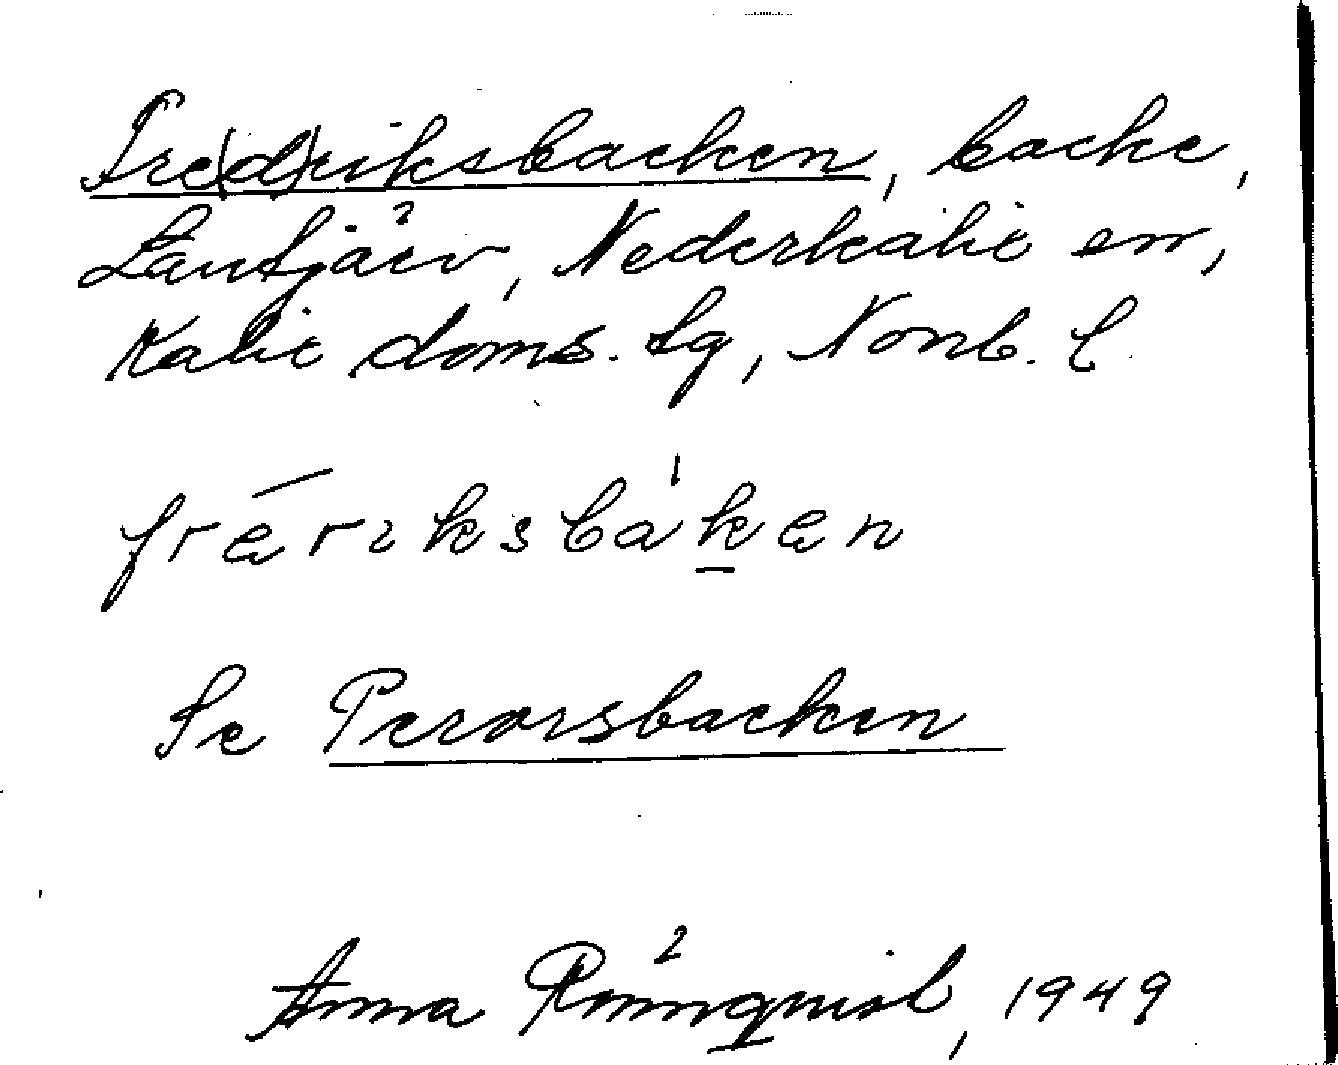 Fre(d)riksbacken, backe,
Lantjärv, Nederkalix sn,
Kalix doms. tg, Norrb. l.
frǽriksbáken
Se Perorsbacken
Anna Rönnquist, 1949